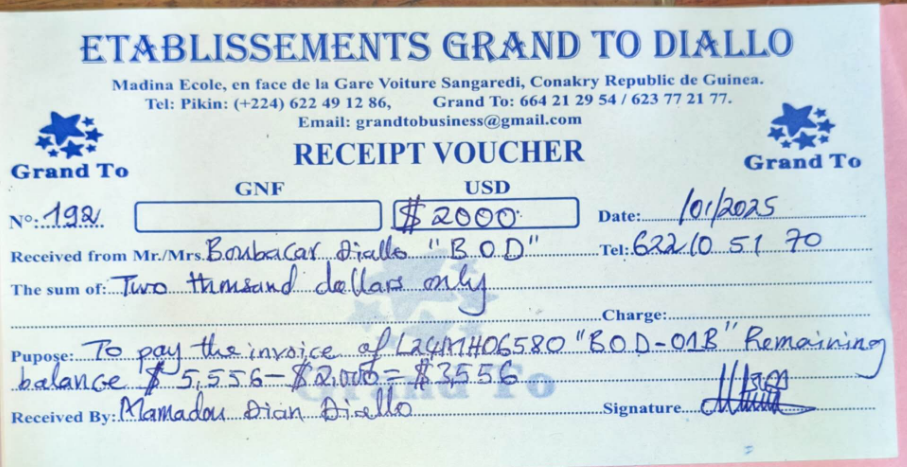 ETABLISSEMENTS GRAND TO DIALLO
Madina Ecole, en face de la Gare Voiture Sangaredi, Conakry Republic de Guinea.
Tel: Pikin: (+224) 622 49 12 86, Grand To: 664 21 29 54 / 623 77 21 77.
Email: grandtobusiness@gmail.com
Grand To
RECEIPT VOUCHER
Grand To
GNF USD
N°: 192 $ 2000 Date: /01/2025
Received from Mr./Mrs. Boubacar Diallo "B.O.D" Tel: 622 10 51 70
The sum of: Two thousand dollars only
Charge:
Pupose: To pay the invoice of L24MH06580 "B.O.D-01B" Remaining
balance $ 5,556-$2,000=$3,556
Grand To
Received By: Mamadou Dian Diallo Signature